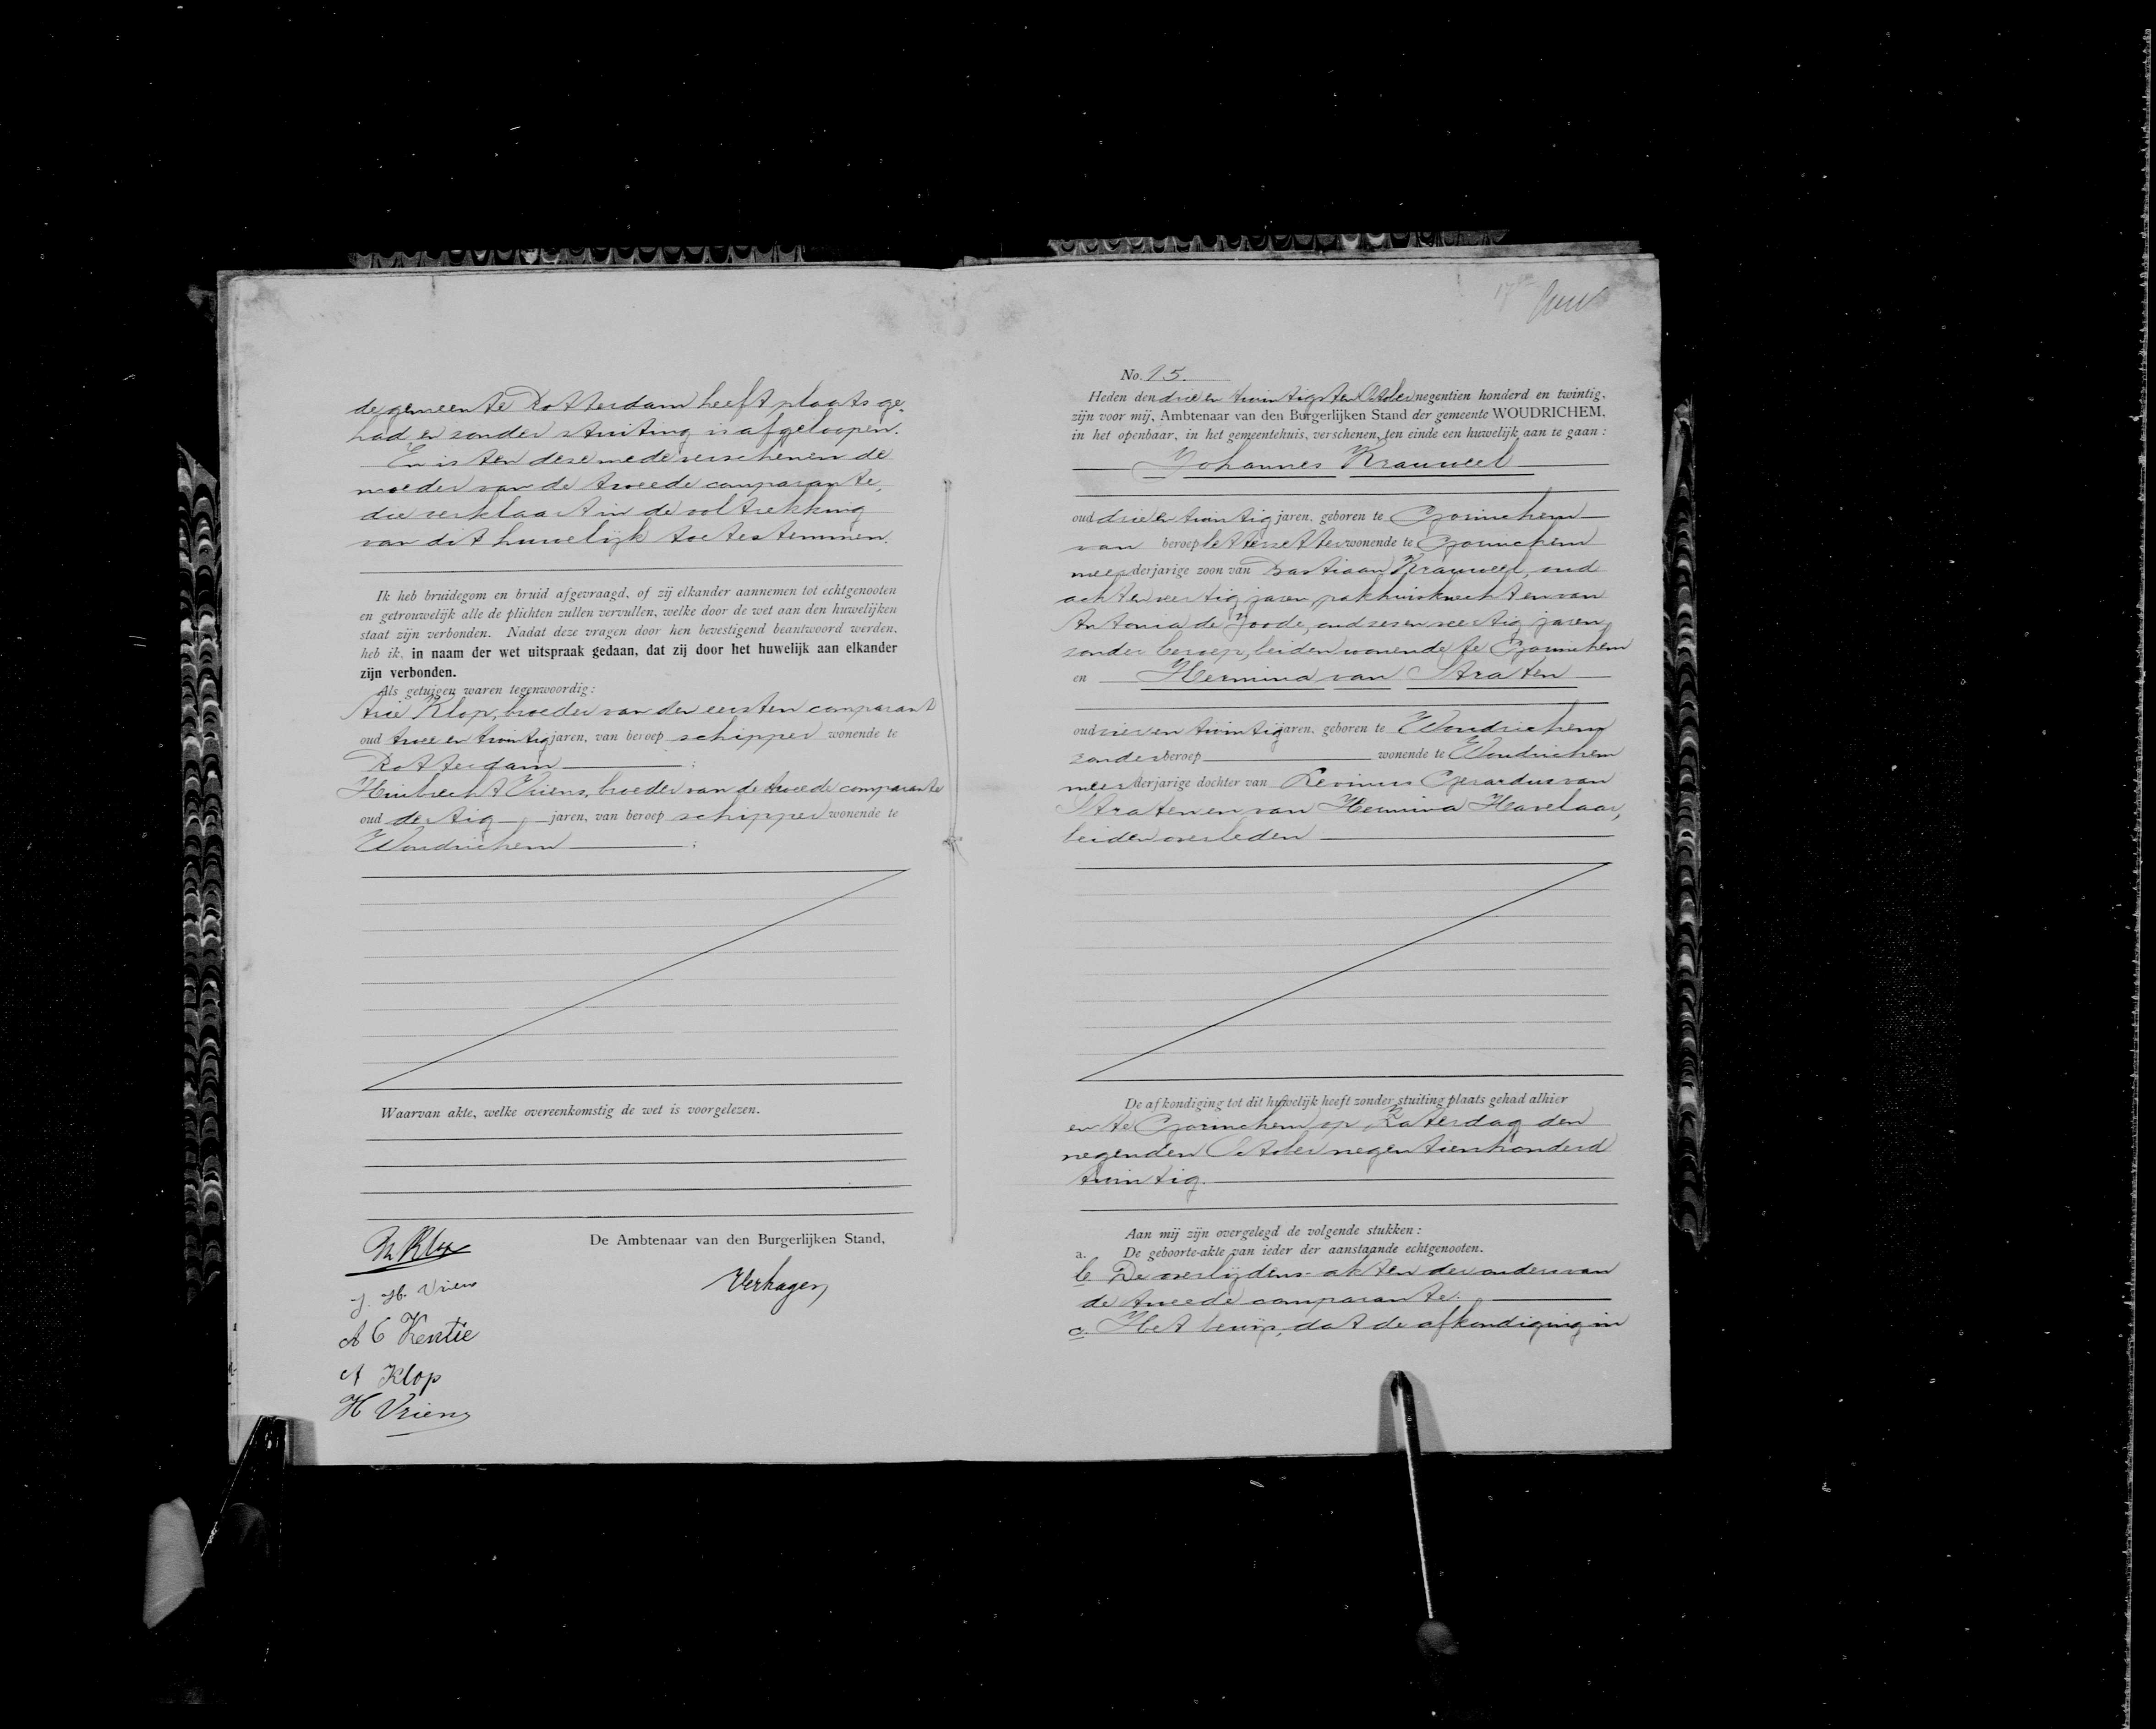 de gemeente Rotterdam heeft plaats ge-
had en zonder stuiting is afgeloopen.
En is ten deze mede verschenen de
moeder van de tweede comparante,
die verklaart in de voltrekking
van dit huwelijk toetestemmen.
Ik heb bruidegom en bruid afgevraagd, of zij elkander aannemen tot echtgenooten
en getrouwelijk alle de plichten zullen vervullen, welke door de wet aan den huwelijken
staat zijn verbonden. Nadat deze vragen door hen bevestigend beantwoord werden,
heb ik, in naam der wet uitspraak gedaan, dat zij door het huwelijk aan elkander
zijn verbonden.
Als getuigen waren tegenwoordig:
Arie Klop, broeder van den eersten comparant
oud twee en twintig jaren, van beroep schipper wonende te
Rotterdam ;
Huibrecht Vriens, broeder van de tweede comparante
oud dertig jaren, van beroep schipper wonende te
Woudrichem ;
Waarvan akte, welke overeenkomstig de wet is voorgelezen.
De Ambtenaar van den Burgerlijken Stand,
Klop
J. H. Vriens
Verhagen
A C Kentie
A Klop
H Vriens
No. 15.
Heden den drie en twintigsten October negentien honderd en twintig,
zijn voor mij, Ambtenaar van den Burgerlijken Stand der gemeente WOUDRICHEM,
in het openbaar, in het gemeentehuis, verschenen, ten einde een huwelijk aan te gaan:
Johannes Krauweel
oud drie en twintig jaren, geboren te Gorinchem
van beroep letterzetter wonende te Gorinchem
meerderjarige zoon van Bastiaan Krauweel, oud
acht en veertig jaren, pakhuisknecht en van
Antonia de Joode, oud zes en veertig jaren,
zonder beroep, beiden wonende te Gorinchem
en Hermina van Straten
oud vier en twintig jaren, geboren te Woudrichem
zonder beroep wonende te Woudrichem
meerderjarige dochter van Levinus Gerardus van
Straten en van Hermina Havelaar,
beiden overleden
De afkondiging tot dit huwelijk heeft zonder stuiting plaats gehad alhier
en te Gorinchem op Zaterdag den
negenden October negentienhonderd
twintig.
Aan mij zijn overgelegd de volgende stukken:
a. De geboorte-akte van ieder der aanstaande echtgenooten.
b. De overlijdens-akten der ouders van
de tweede comparante.
c. Het bewijs, dat de afkondiging in